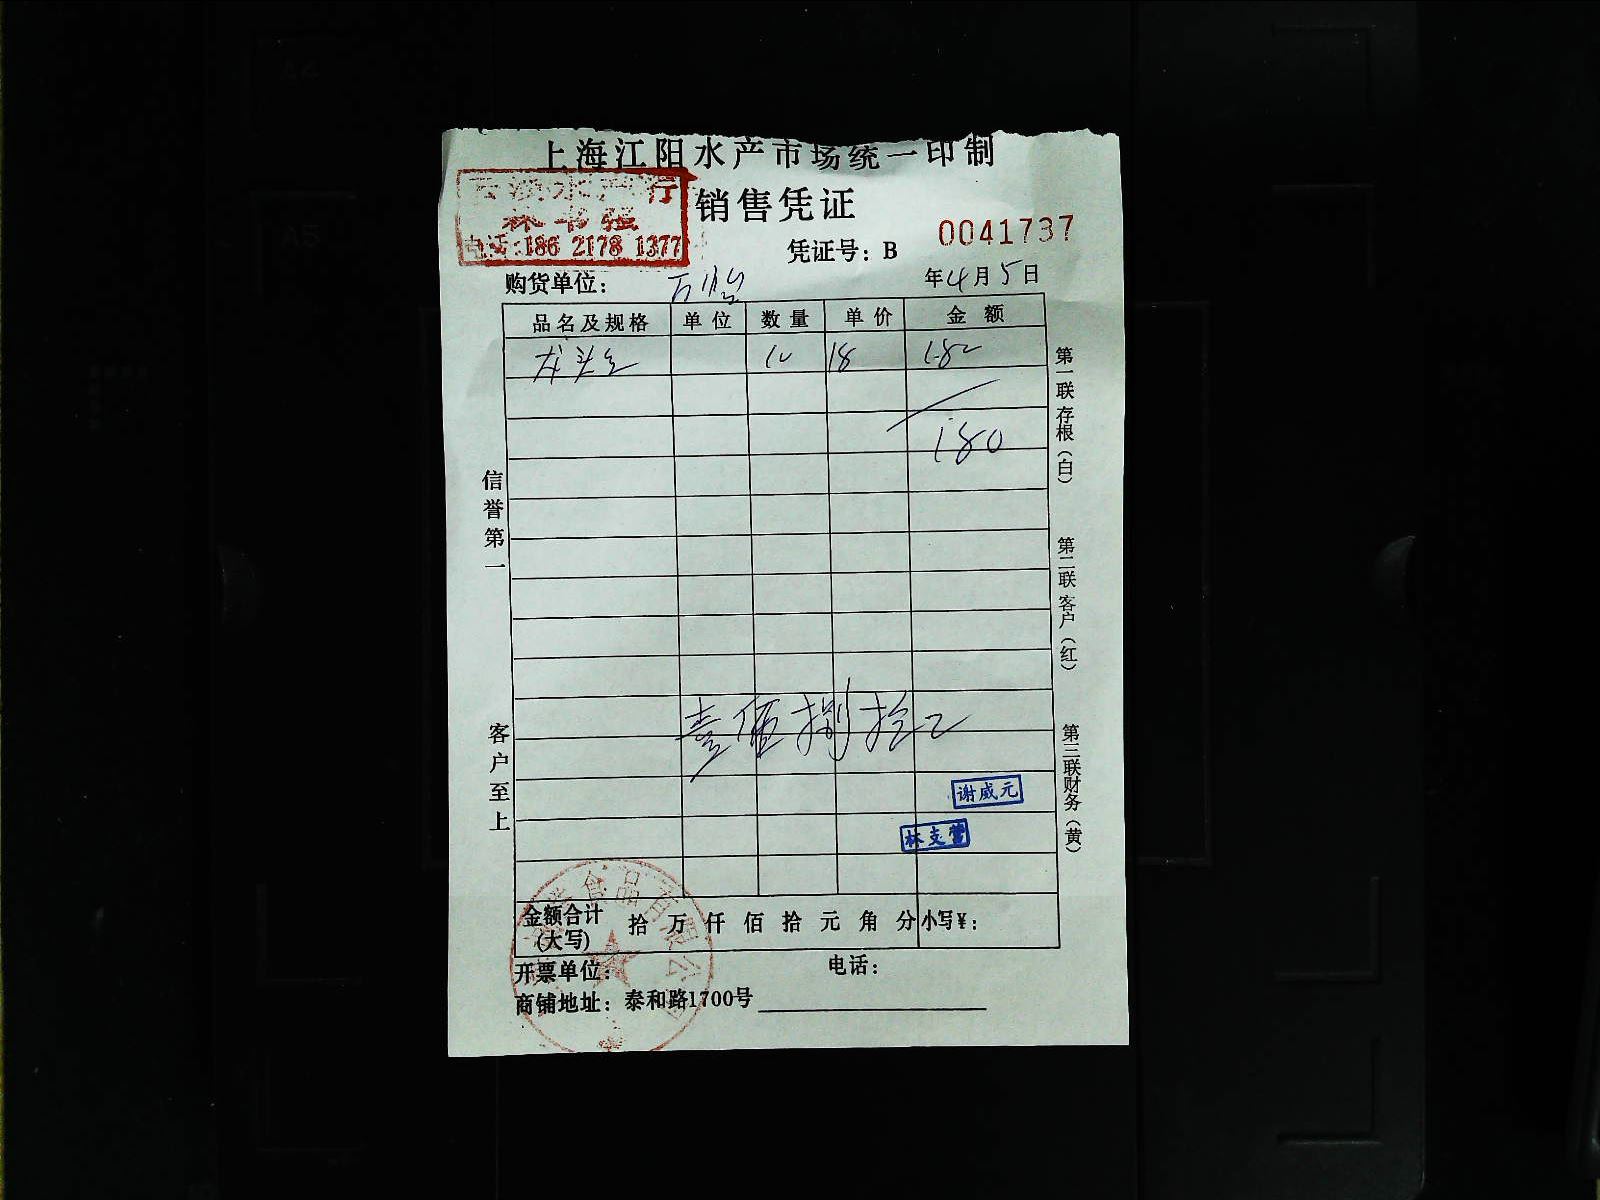 上海江阳水产市场统一印制
销售凭证
电话:186 2178 1377
凭证号：B 0041737
购货单位： 万怡
年4月5日
品名及规格 单位 数量 单价 金额
龙头 18 182
180
壹佰捌拾
谢威元
林支营
金额合计(大写) 拾万仟佰拾元角分 小写¥：
食品有限公
开票单位： 电话：
商铺地址：泰和路1700号
信誉第一
客户至上
第一联存根（白）
第二联客户（红）
第三联财务（黄）